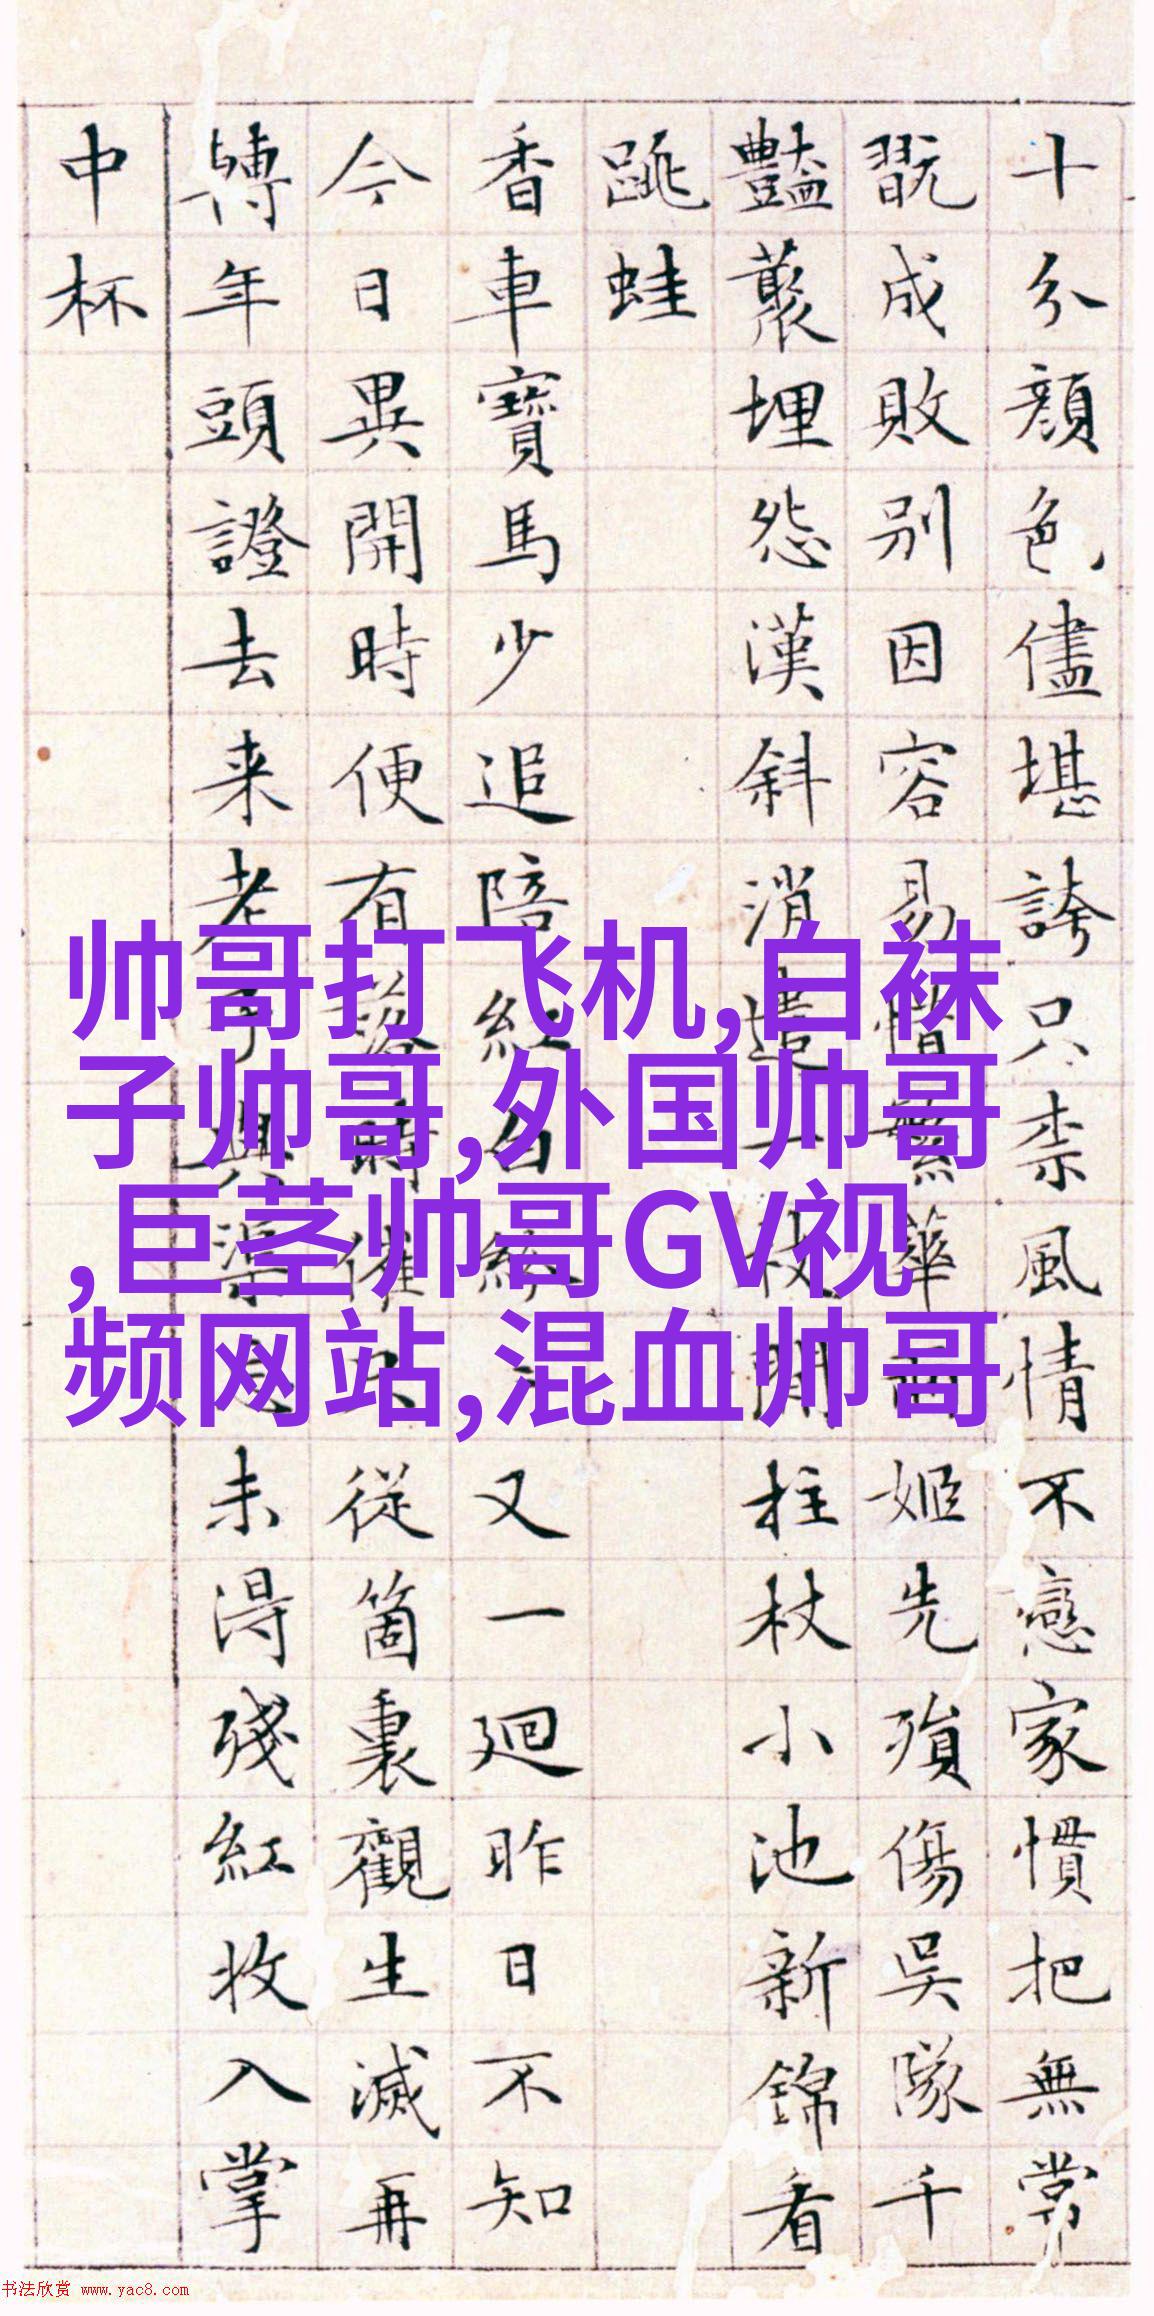 十分顏色儘堪誇只柰風情不戀家慣把無常
翫成敗別因容易惜繁華兩姬先殞傷吳隊千
豔叢埋怨漢斜消遣一枝閒柱杖小池新錦看
跳蛙
香車寶馬少追陪紅白又一廻昨日不知
今日異開時便有落時催只從箇裏觀生滅再
轉年頭證去来老子與渠未淂殘紅收入掌
中杯
帅哥打飞机,白袜
子帅哥,外国帅哥
,巨茎帅哥GV视
频网站,混血帅哥
书法欣赏 www.yac8.com